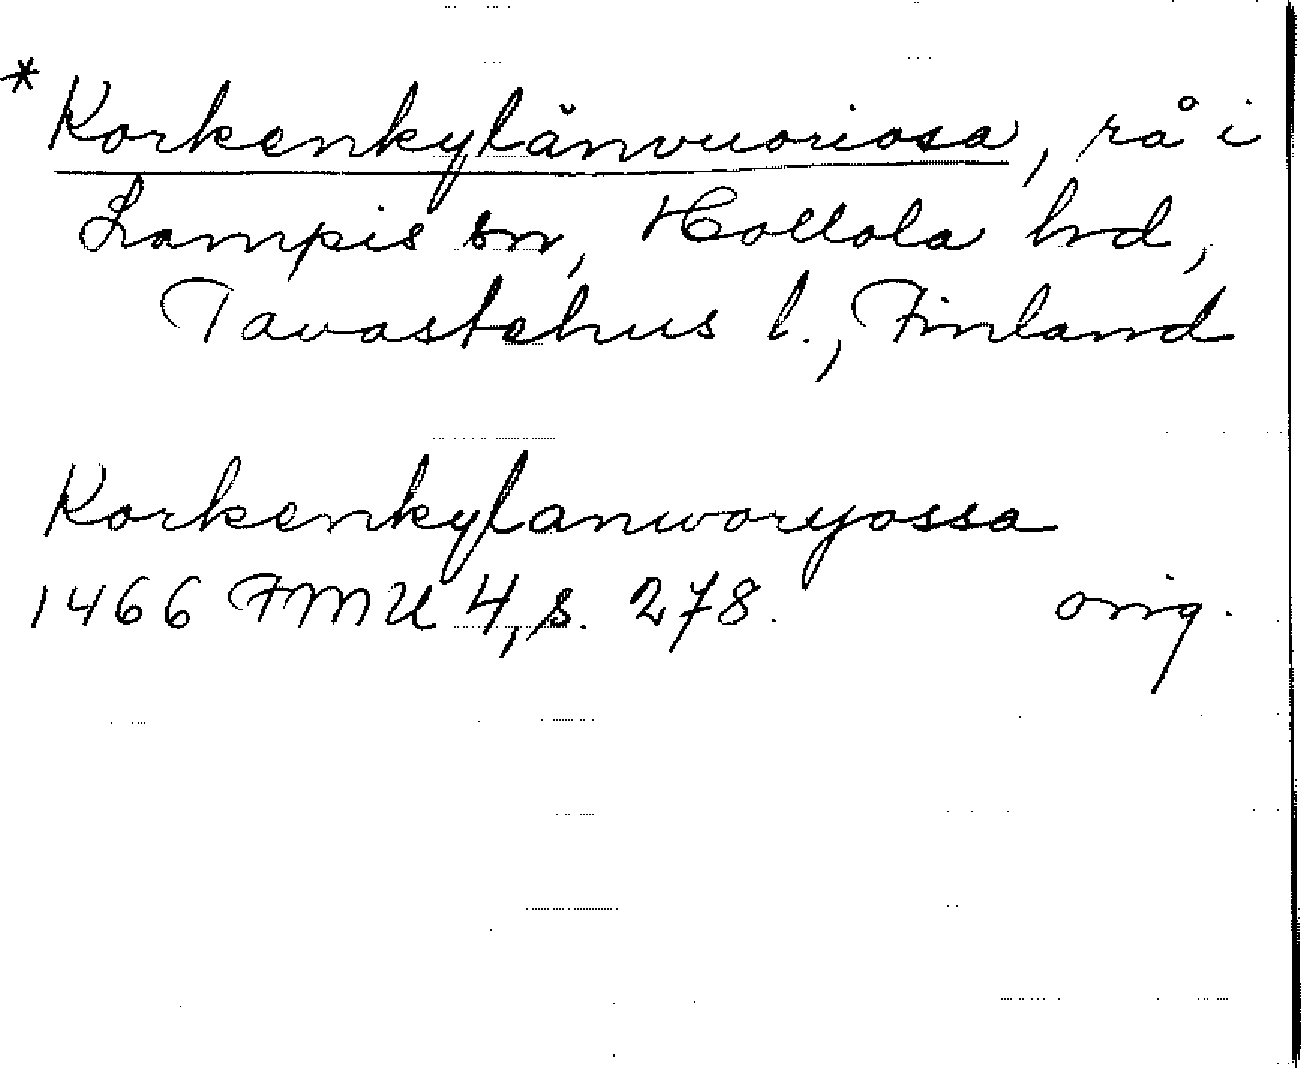 * Korkenkylänvuoriosa, rå i
Lampis sn, Hollola hd,
Tavastehus l., Finland
Korkenkylanworyossa
1466 FMU 4, s. 278. orig.